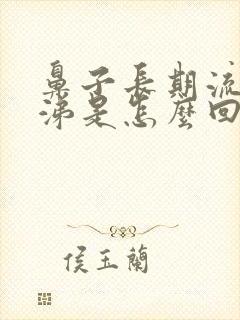 鼻子長期流
涕是怎麼回
侯玉蘭